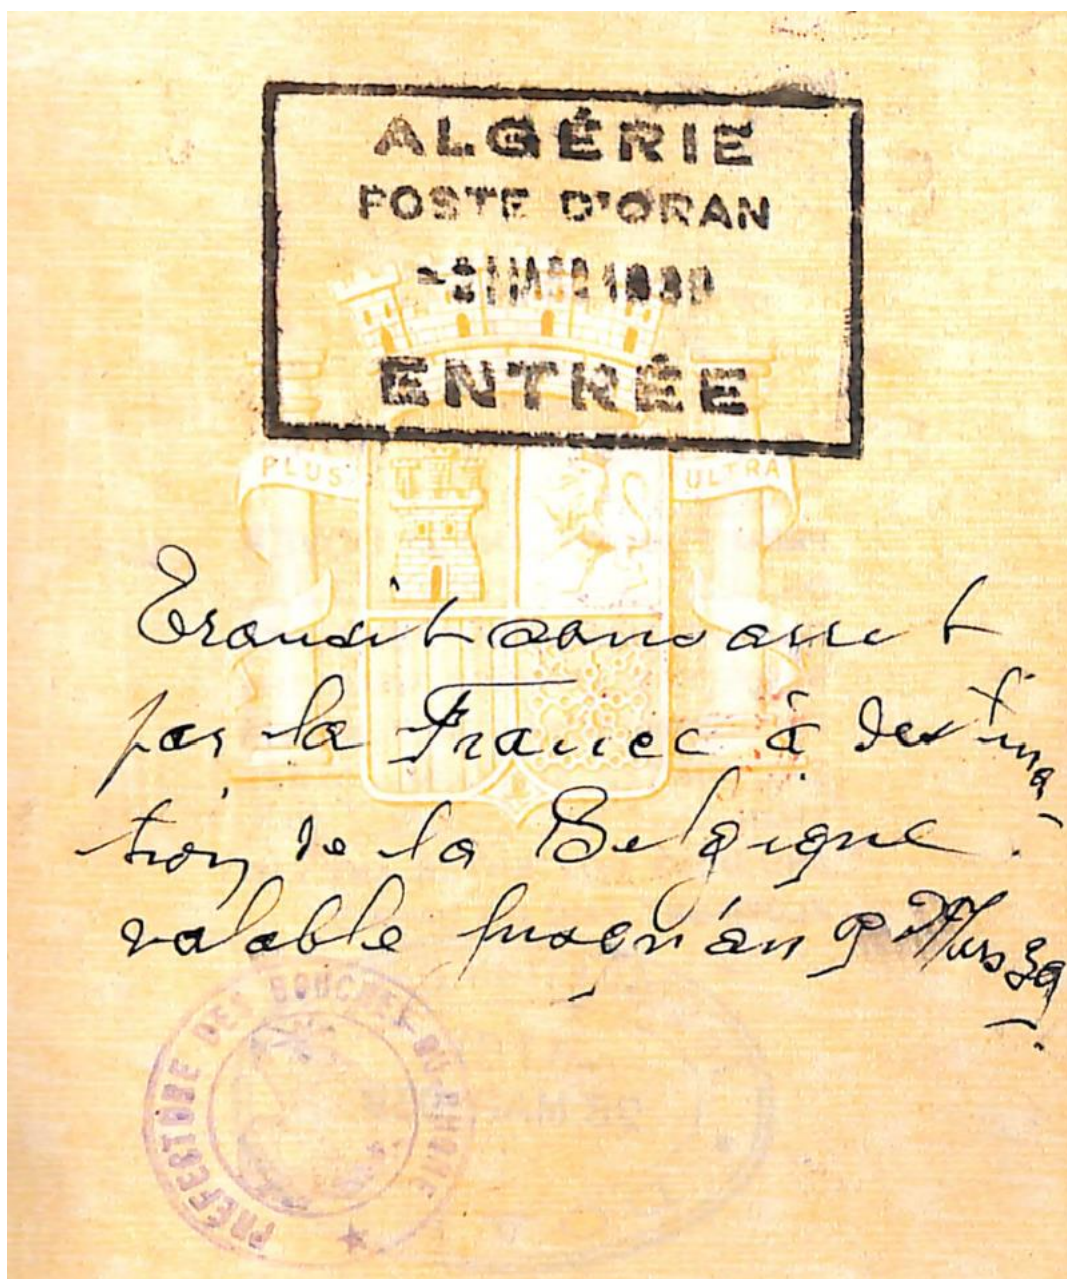 ALGÉRIE
POSTE D'ORAN
ENTRÉE
PLUS ULTRA
Transit sans arret
par la France à destina-
tion de la Belgique.
valable jusqu'au 9 Mars 39
PRÉFECTURE DES BOUCHES-DU-RHÔNE